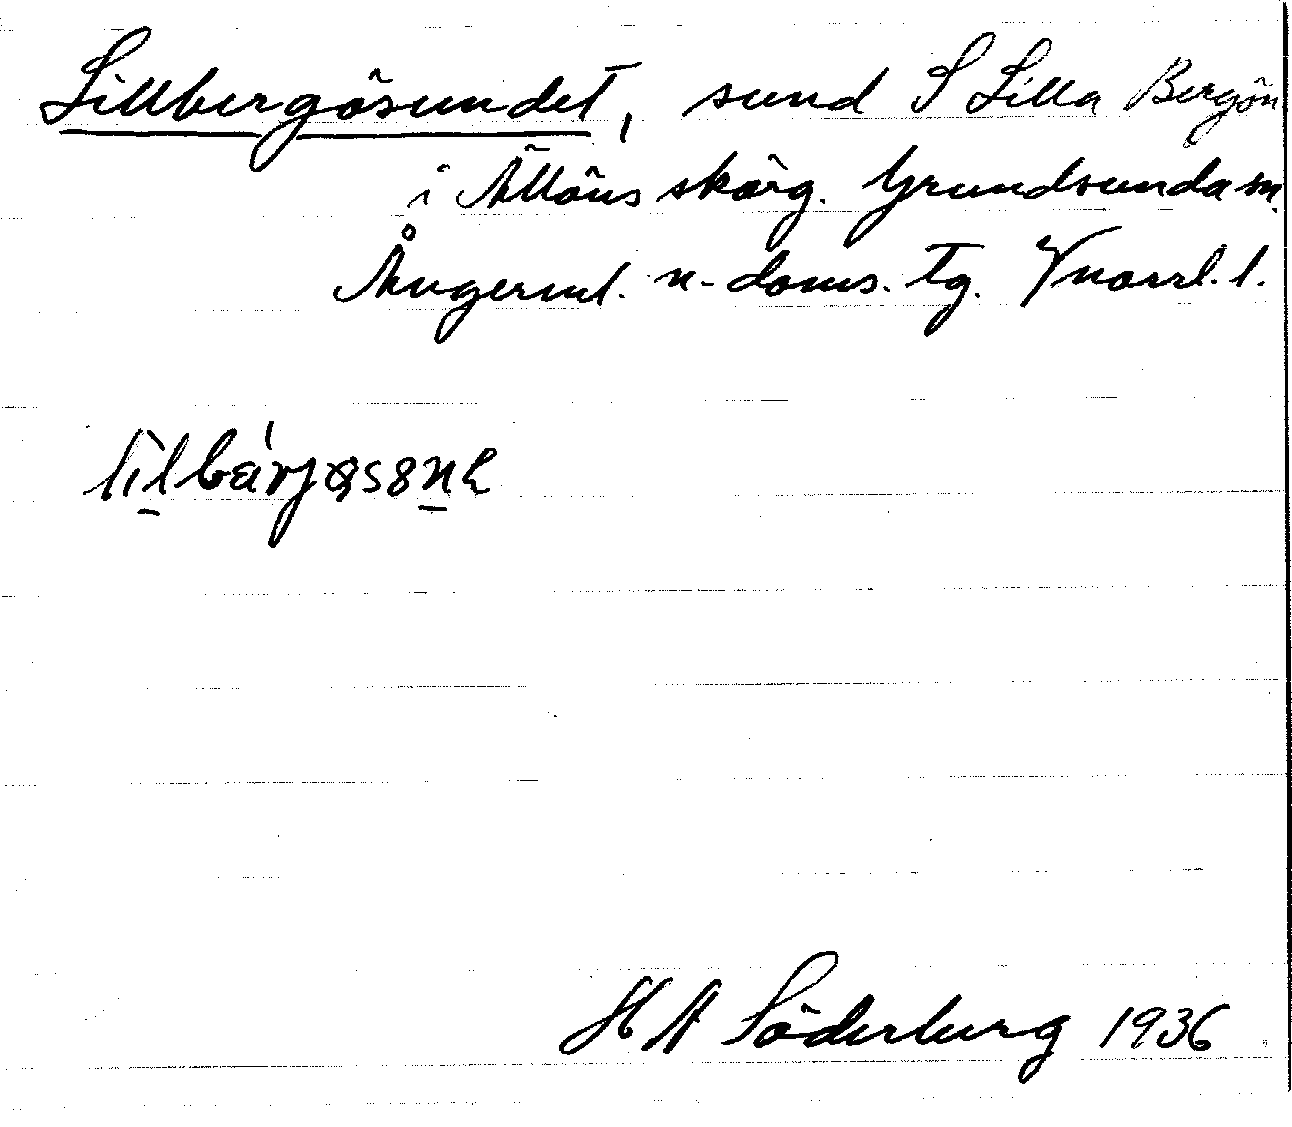 Lillbergösundet, sund S Lilla Bergön
i Ällöns skärg. Grundsunda sn.
Ångerml. n. doms. tg. Vnorrl. l.
H A Söderberg 1936